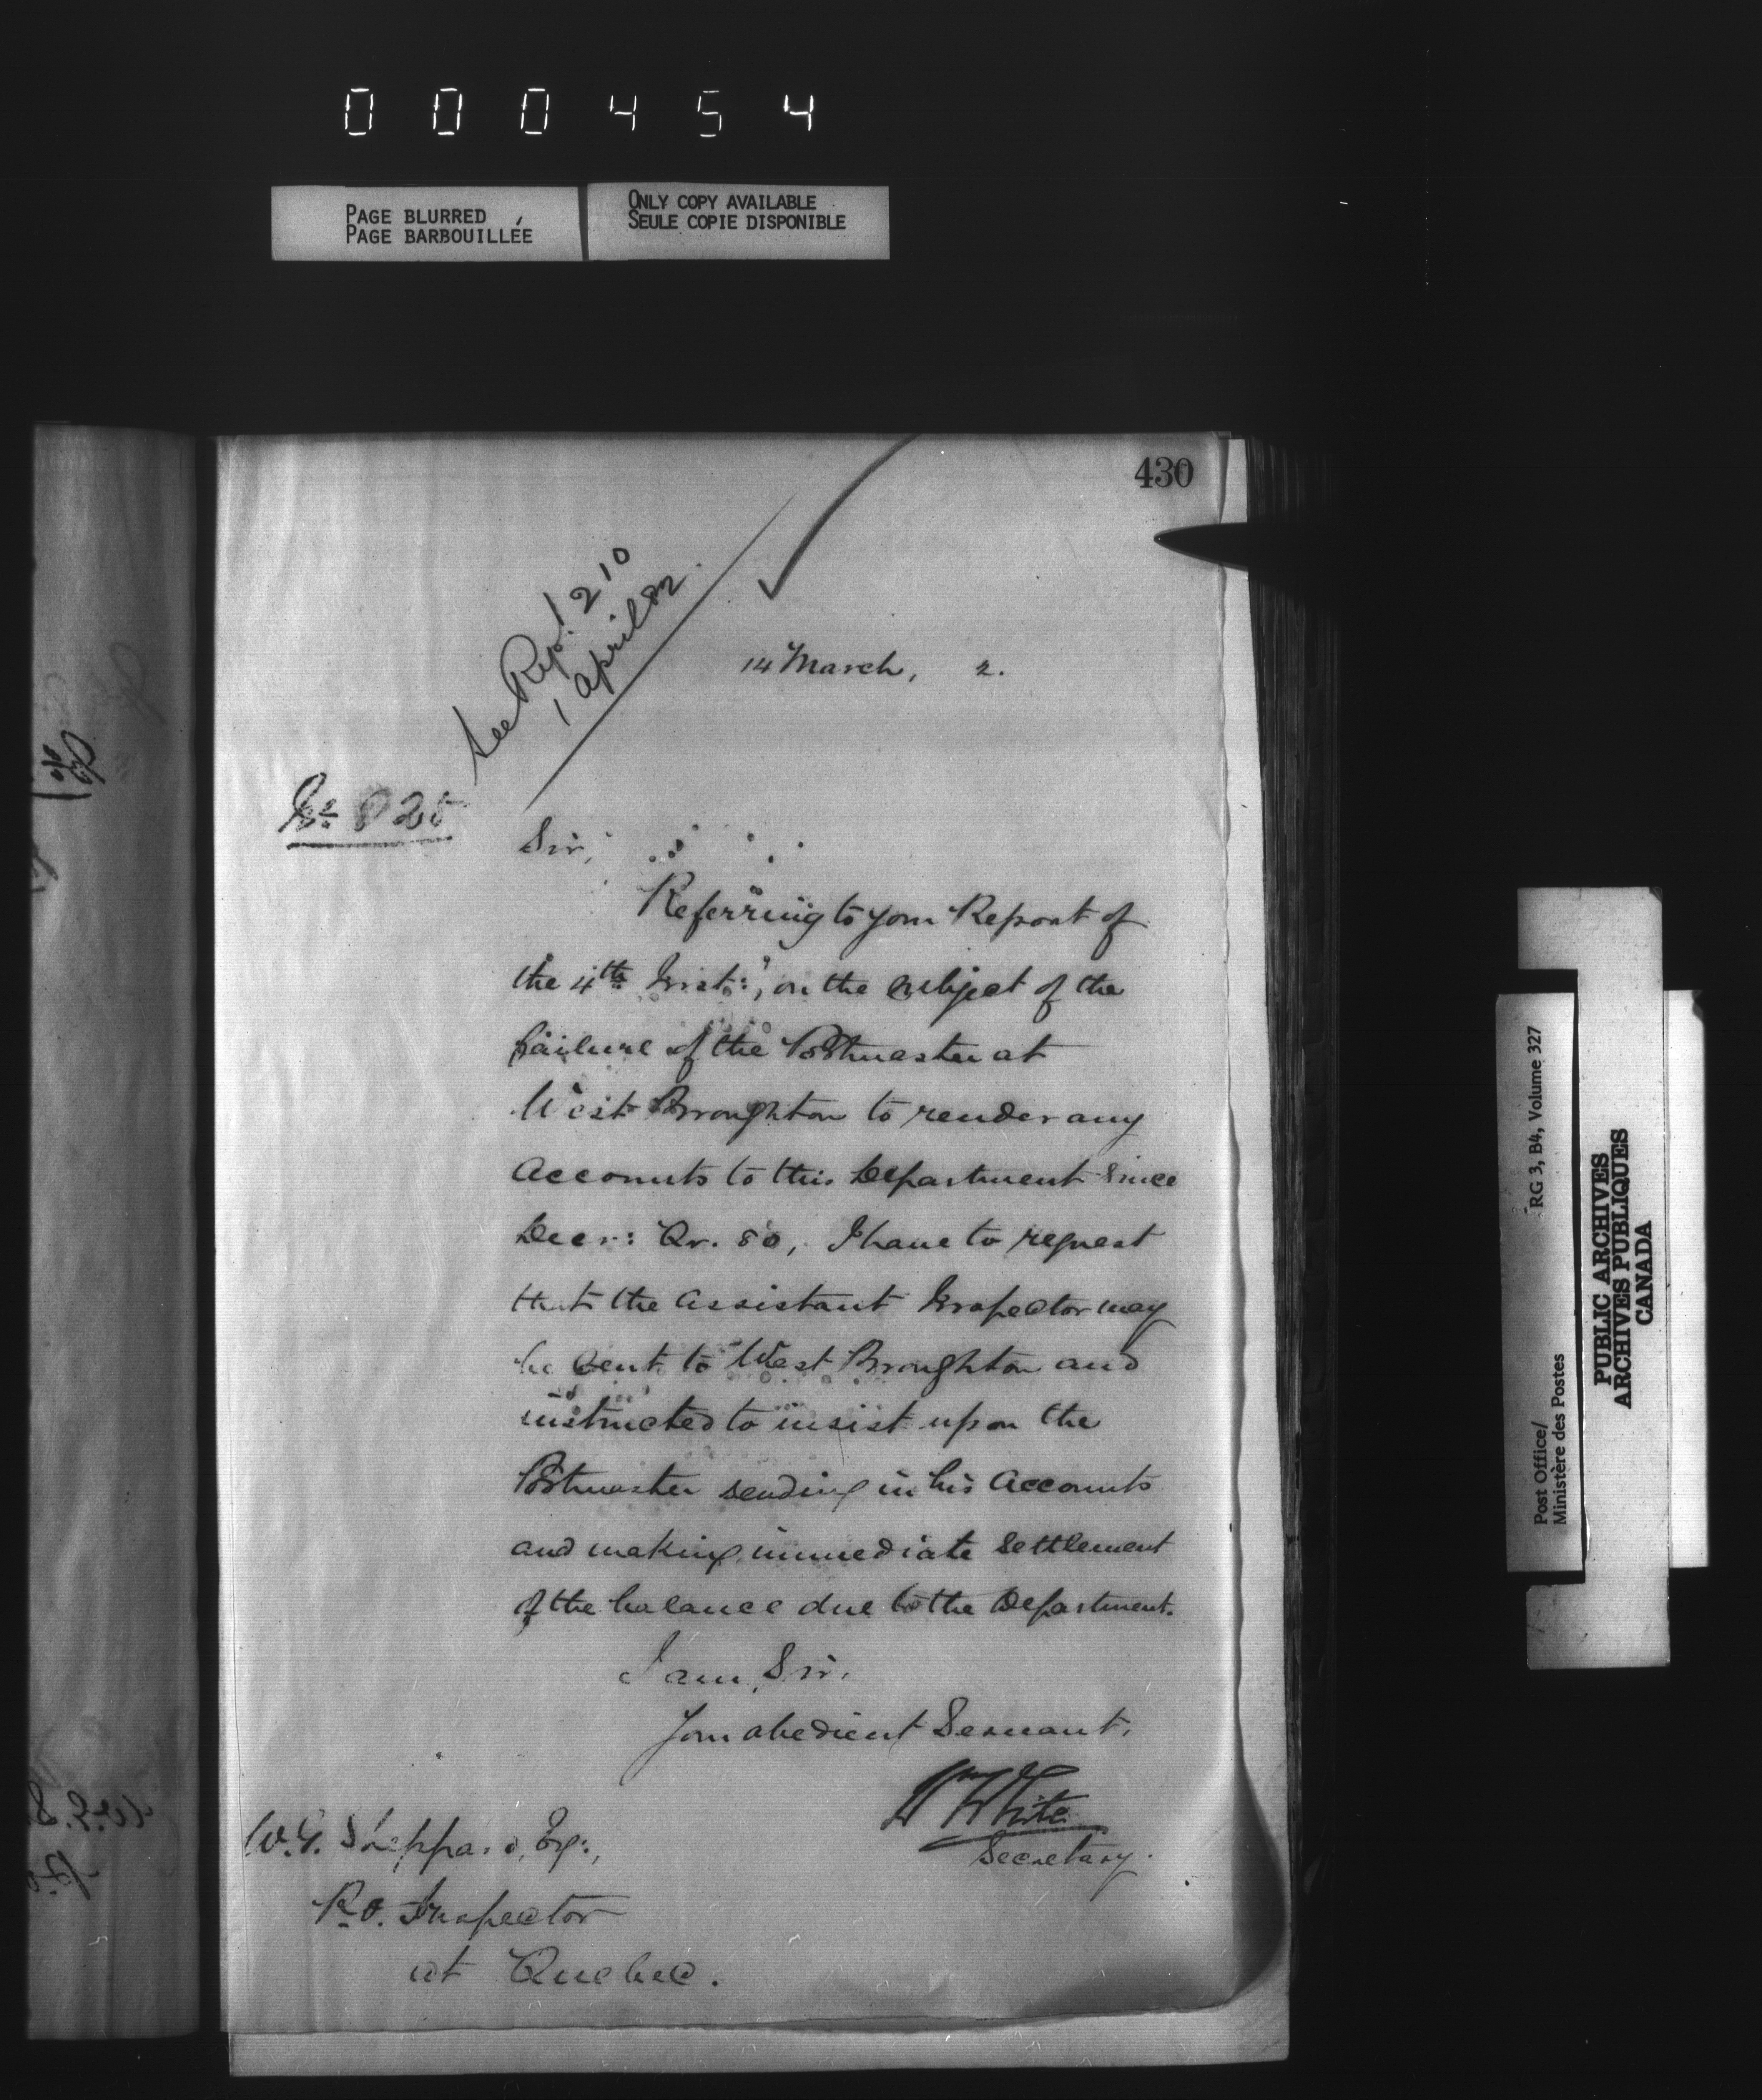 000454
PAGE BLURRED
PAGE BARBOUILLÉE
ONLY COPY AVAILABLE
SEULE COPIE DISPONIBLE
430
See Rept. 210
1 April 82.
14 March, 2.
No. 825
Sir,
Referring to your Report of
the 4th Inst:, on the subject of the
failure of the Postmaster at
West Broughton to render any
Accounts to this Department since
Decr: Qr. 80, I have to request
that the Assistant Inspector may
be sent to West Broughton and
instructed to insist upon the
Postmaster sending in his Accounts
and making immediate settlement
of the balance due to the Department.
I am, Sir,
Your obedient Servant,
Wm White
Secretary.
W.G. Sheppard, Esq:,
P.O. Inspector
at Quebec.
RG 3, B4, Volume 327
Post Office/
Ministère des Postes
PUBLIC ARCHIVES
ARCHIVES PUBLIQUES
CANADA